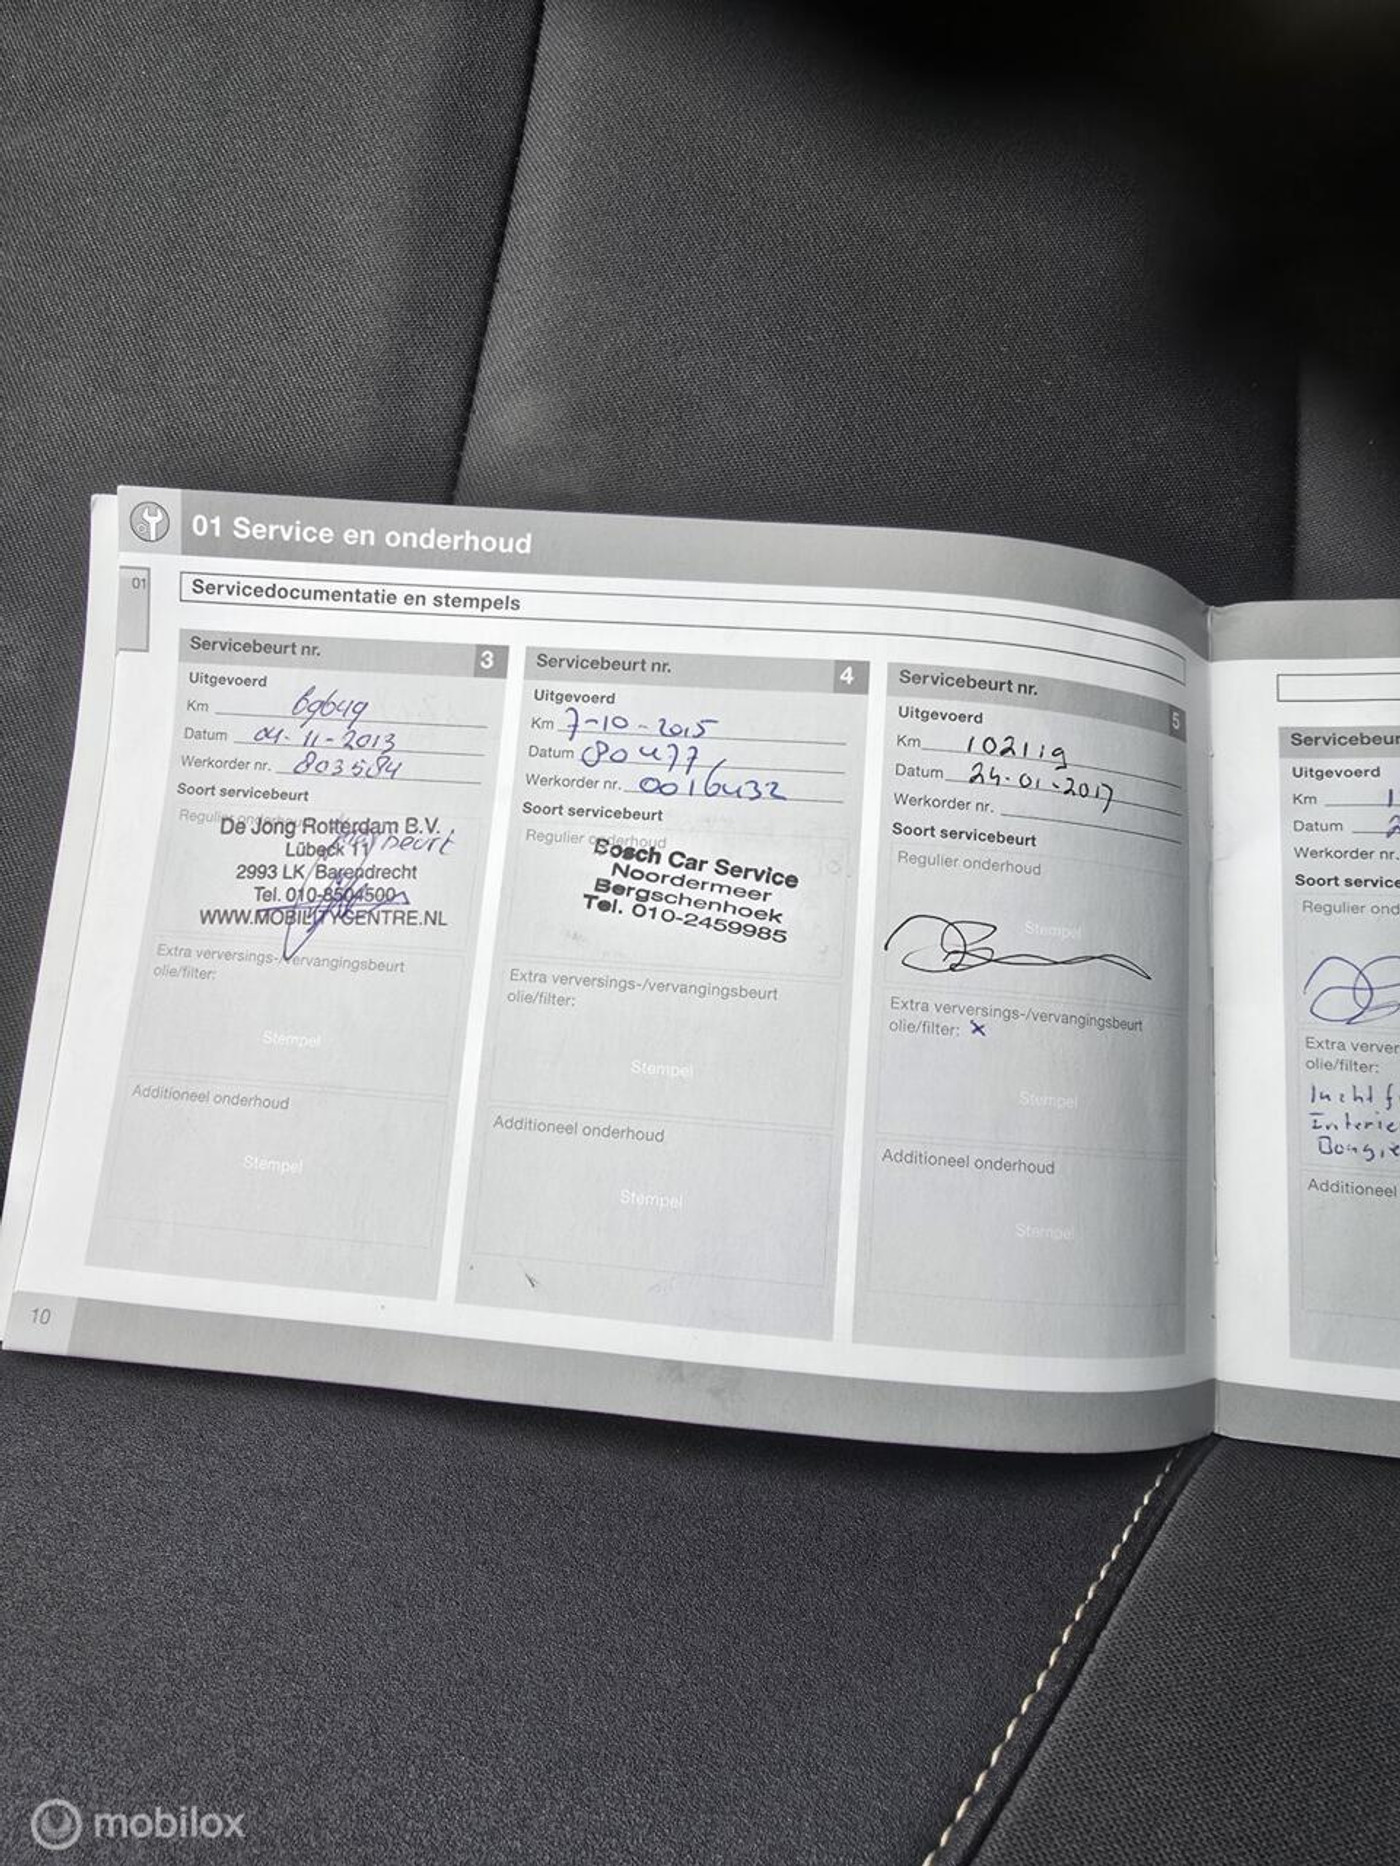 01 Service en onderhoud
01
Servicedocumentatie en stempels
Servicebeurt nr. 3
Uitgevoerd
Km 69649
Datum 04-11-2013
Werkorder nr. 803584
Soort servicebeurt
Regulier onderhoud
beurt
De Jong Rotterdam B.V.
Lübeck 11
2993 LK Barendrecht
Tel. 010-8504500
WWW.MOBILITYCENTRE.NL
Extra verversings-/vervangingsbeurt
olie/filter:
Stempel
Additioneel onderhoud
Stempel
Servicebeurt nr. 4
Uitgevoerd
Km 7-10-2015
Datum 80477
Werkorder nr. 0016432
Soort servicebeurt
Regulier onderhoud
Bosch Car Service
Noordermeer
Bergschenhoek
Tel. 010-2459985
Extra verversings-/vervangingsbeurt
olie/filter:
Stempel
Additioneel onderhoud
Stempel
Servicebeurt nr. 5
Uitgevoerd
Km 102119
Datum 24-01-2017
Werkorder nr.
Soort servicebeurt
Regulier onderhoud
Stempel
Extra verversings-/vervangingsbeurt
olie/filter: x
Stempel
Additioneel onderhoud
Stempel
Servicebeur
Uitgevoerd
Km 1
Datum 2
Werkorder nr.
Soort service
Regulier ond
Extra verver
olie/filter:
Lucht f
Interie
Bougie
Additioneel
10
mobilox